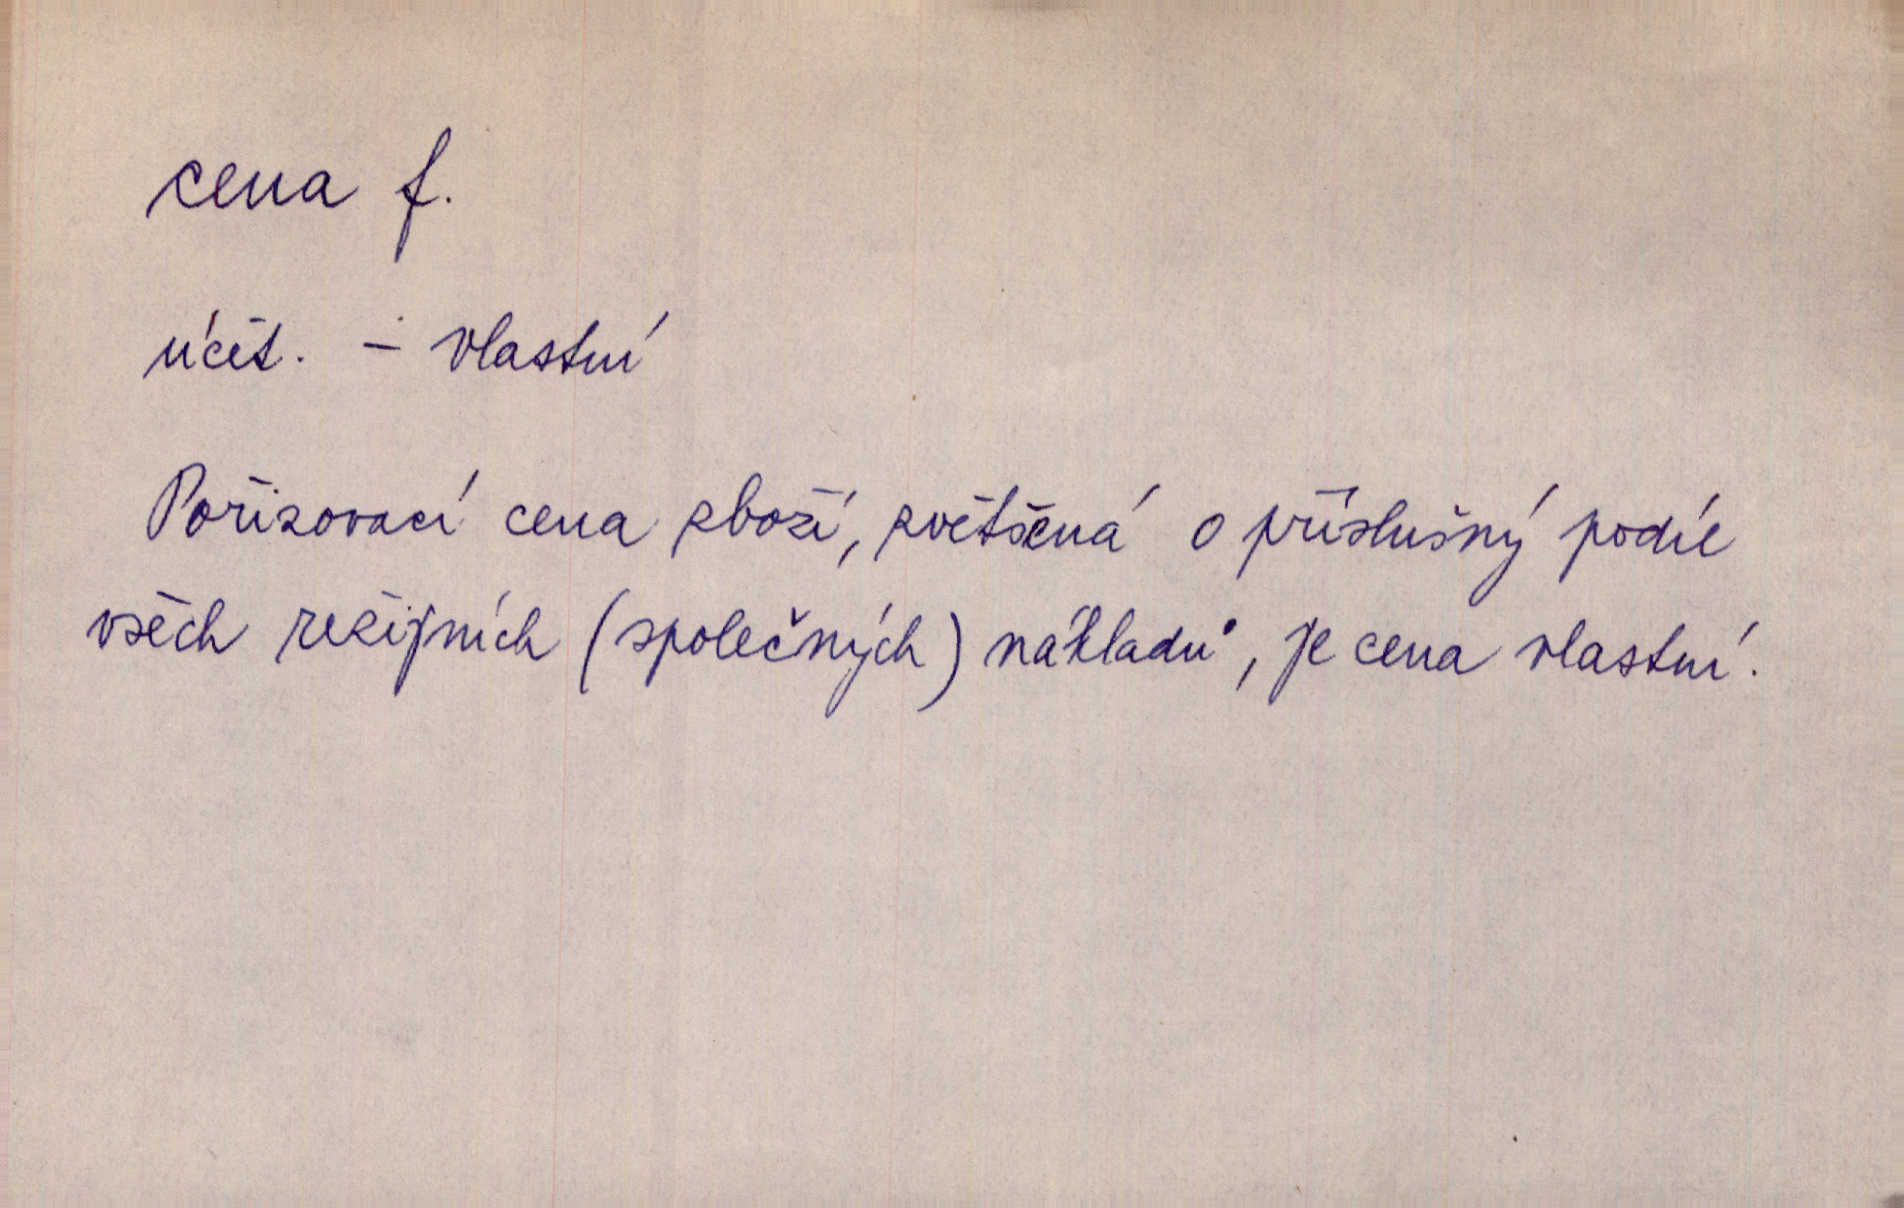 cena f.
účet. – vlastní
Pořizovací cena zboží, zvětšená o příslušný podíl
všech režijních (společných) nákladů, je cena vlastní.